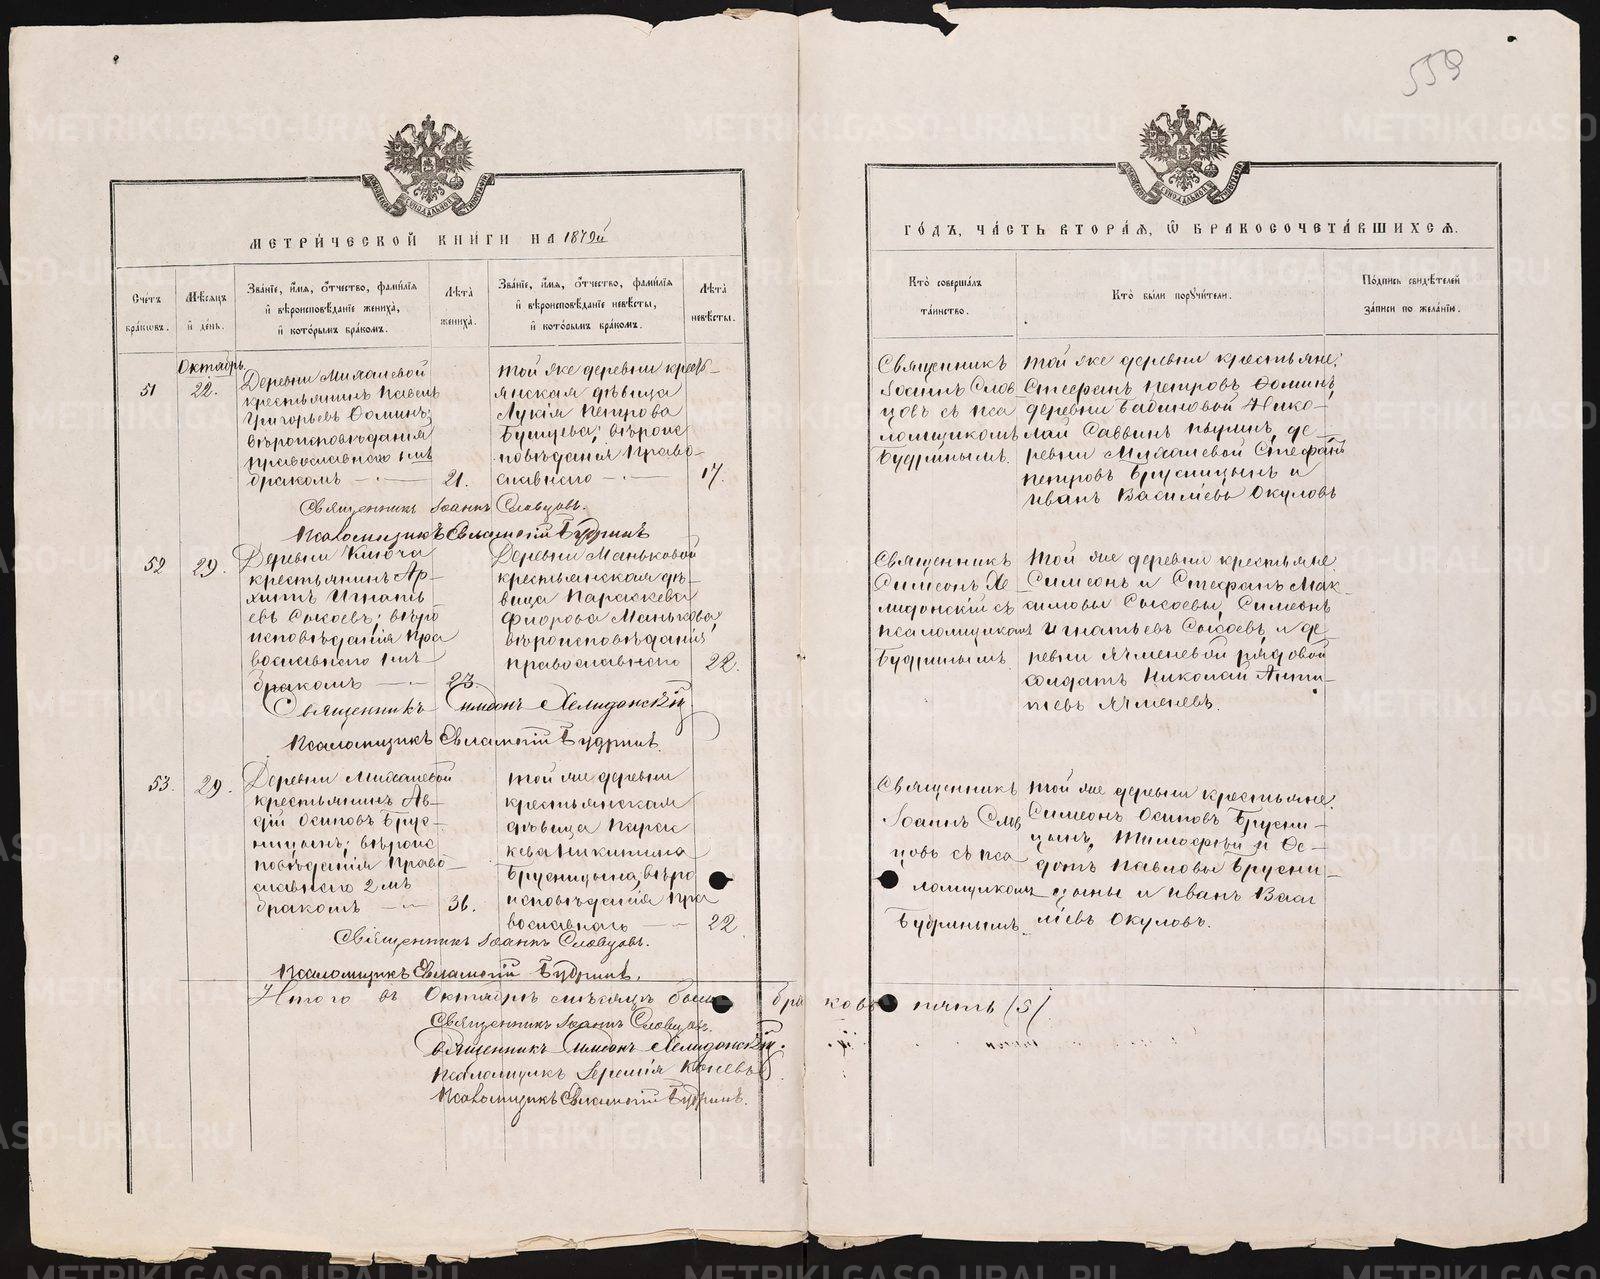 559
МЕТРИ́ЧЕСКОЙ КНИ́ГИ НА 1879й
ГО́ДЪ, ЧА́СТЬ ВТОРА́Я, Ѡ БРАКОСОЧЕТА́ВШИХСЯ.
Сче́тъ бра́кωвъ.
Мѣ́сяцъ и҆ де́нь.
Зва́нїе, и҆́мя, ѻ҆́тчество, фами́лїя
и҆ вѣроисповѣ́данїе жениха̀,
и҆ кото́рымъ бра́комъ.
Лѣ́та жениха̀.
Зва́нїе, и҆́мя, ѻ҆́тчество, фами́лїя
и҆ вѣроисповѣ́данїе невѣ́сты,
и҆ кото́рымъ бра́комъ.
Лѣ́та невѣ́сты.
Кто̀ соверша́лъ
та́инство.
Кто̀ бы́ли порꙋчи́тели.
По́дпись свидѣ́телей
за́писи по жела́нїю.
Октябрь
51
22.
Деревни Михалевой
крестьянинъ Павелъ
Григорьевъ Ѳоминъ;
вѣроисповѣданія
православнаго 1мъ
бракомъ —
21.
той же деревни кресть-
янская дѣвица
Лукія Петрова
вѣроис
повѣданія право-
славнаго —
17.
Священникъ
Іоаннъ Слов
цовъ съ пса
ломщикомъ
Будринымъ.
той же деревни крестьяне:
Стефанъ Петровъ Ѳоминъ,
деревни Бабиновой Нико-
лай Саввинъ Пьулинъ, де-
ревни Михалевой Стефанъ
Петровъ Брусницынъ и
Иванъ Васильевъ Окуловъ
Священникъ Іоаннъ Словцовъ.
Псаломщикъ Евлампій Будринъ
52
29.
Деревни Ключа
крестьянинъ Ар-
хипъ Игнать
евъ Сысоевъ; вѣро
исповѣданія пра
вославнаго 1мъ
бракомъ —
23.
Деревни Маньковой
крестьянская дѣ-
вица Параскева
Флорова Манькова,
вѣроисповѣданія
православнаго
22.
Священникъ
Симеонъ Хе
лидонскій съ
псаломщикомъ
Будринымъ.
той же деревни крестьяне.
Симеонъ и Стефанъ Мак-
симовы Сысоевы, Симеонъ
Игнатьевъ Сысоевъ и де
ревни Ячменевой рядовой
солдатъ Николай Анти-
певъ Ячменевъ.
Священникъ Симеонъ Хелидонскій
Псаломщикъ Евлампій Будринъ.
53.
29.
Деревни Михалевой
крестьянинъ Ав-
дій Осиповъ Брус-
ницынъ; вѣроис
повѣданія право-
славнаго 2мъ
бракомъ —
36.
той же деревни
крестьянская
дѣвица Парас
кева Никитина
Брусницына, вѣро
исповѣданія пра
вославнаго —
22
Священникъ
Іоаннъ Слов
цовъ съ пса
ломщикомъ
Будринымъ.
той же деревни крестьяне.
Симеонъ Осиповъ Брусни-
цынъ, Тимофѣй и Ѳе-
дотъ Павловы Брусни-
цыны и Иванъ Васи
ліевъ Окуловъ.
Священникъ Іоаннъ Словцовъ.
Псаломщикъ Евлампій Будринъ.
Итого въ Октябрѣ мѣсяцѣ было браковъ пять (5)
Священникъ Іоаннъ Словцовъ.
Священникъ Симеонъ Хелидонскій.
Псаломщикъ Іеремія Коневъ
Псаломщикъ Евлампій Будринъ.